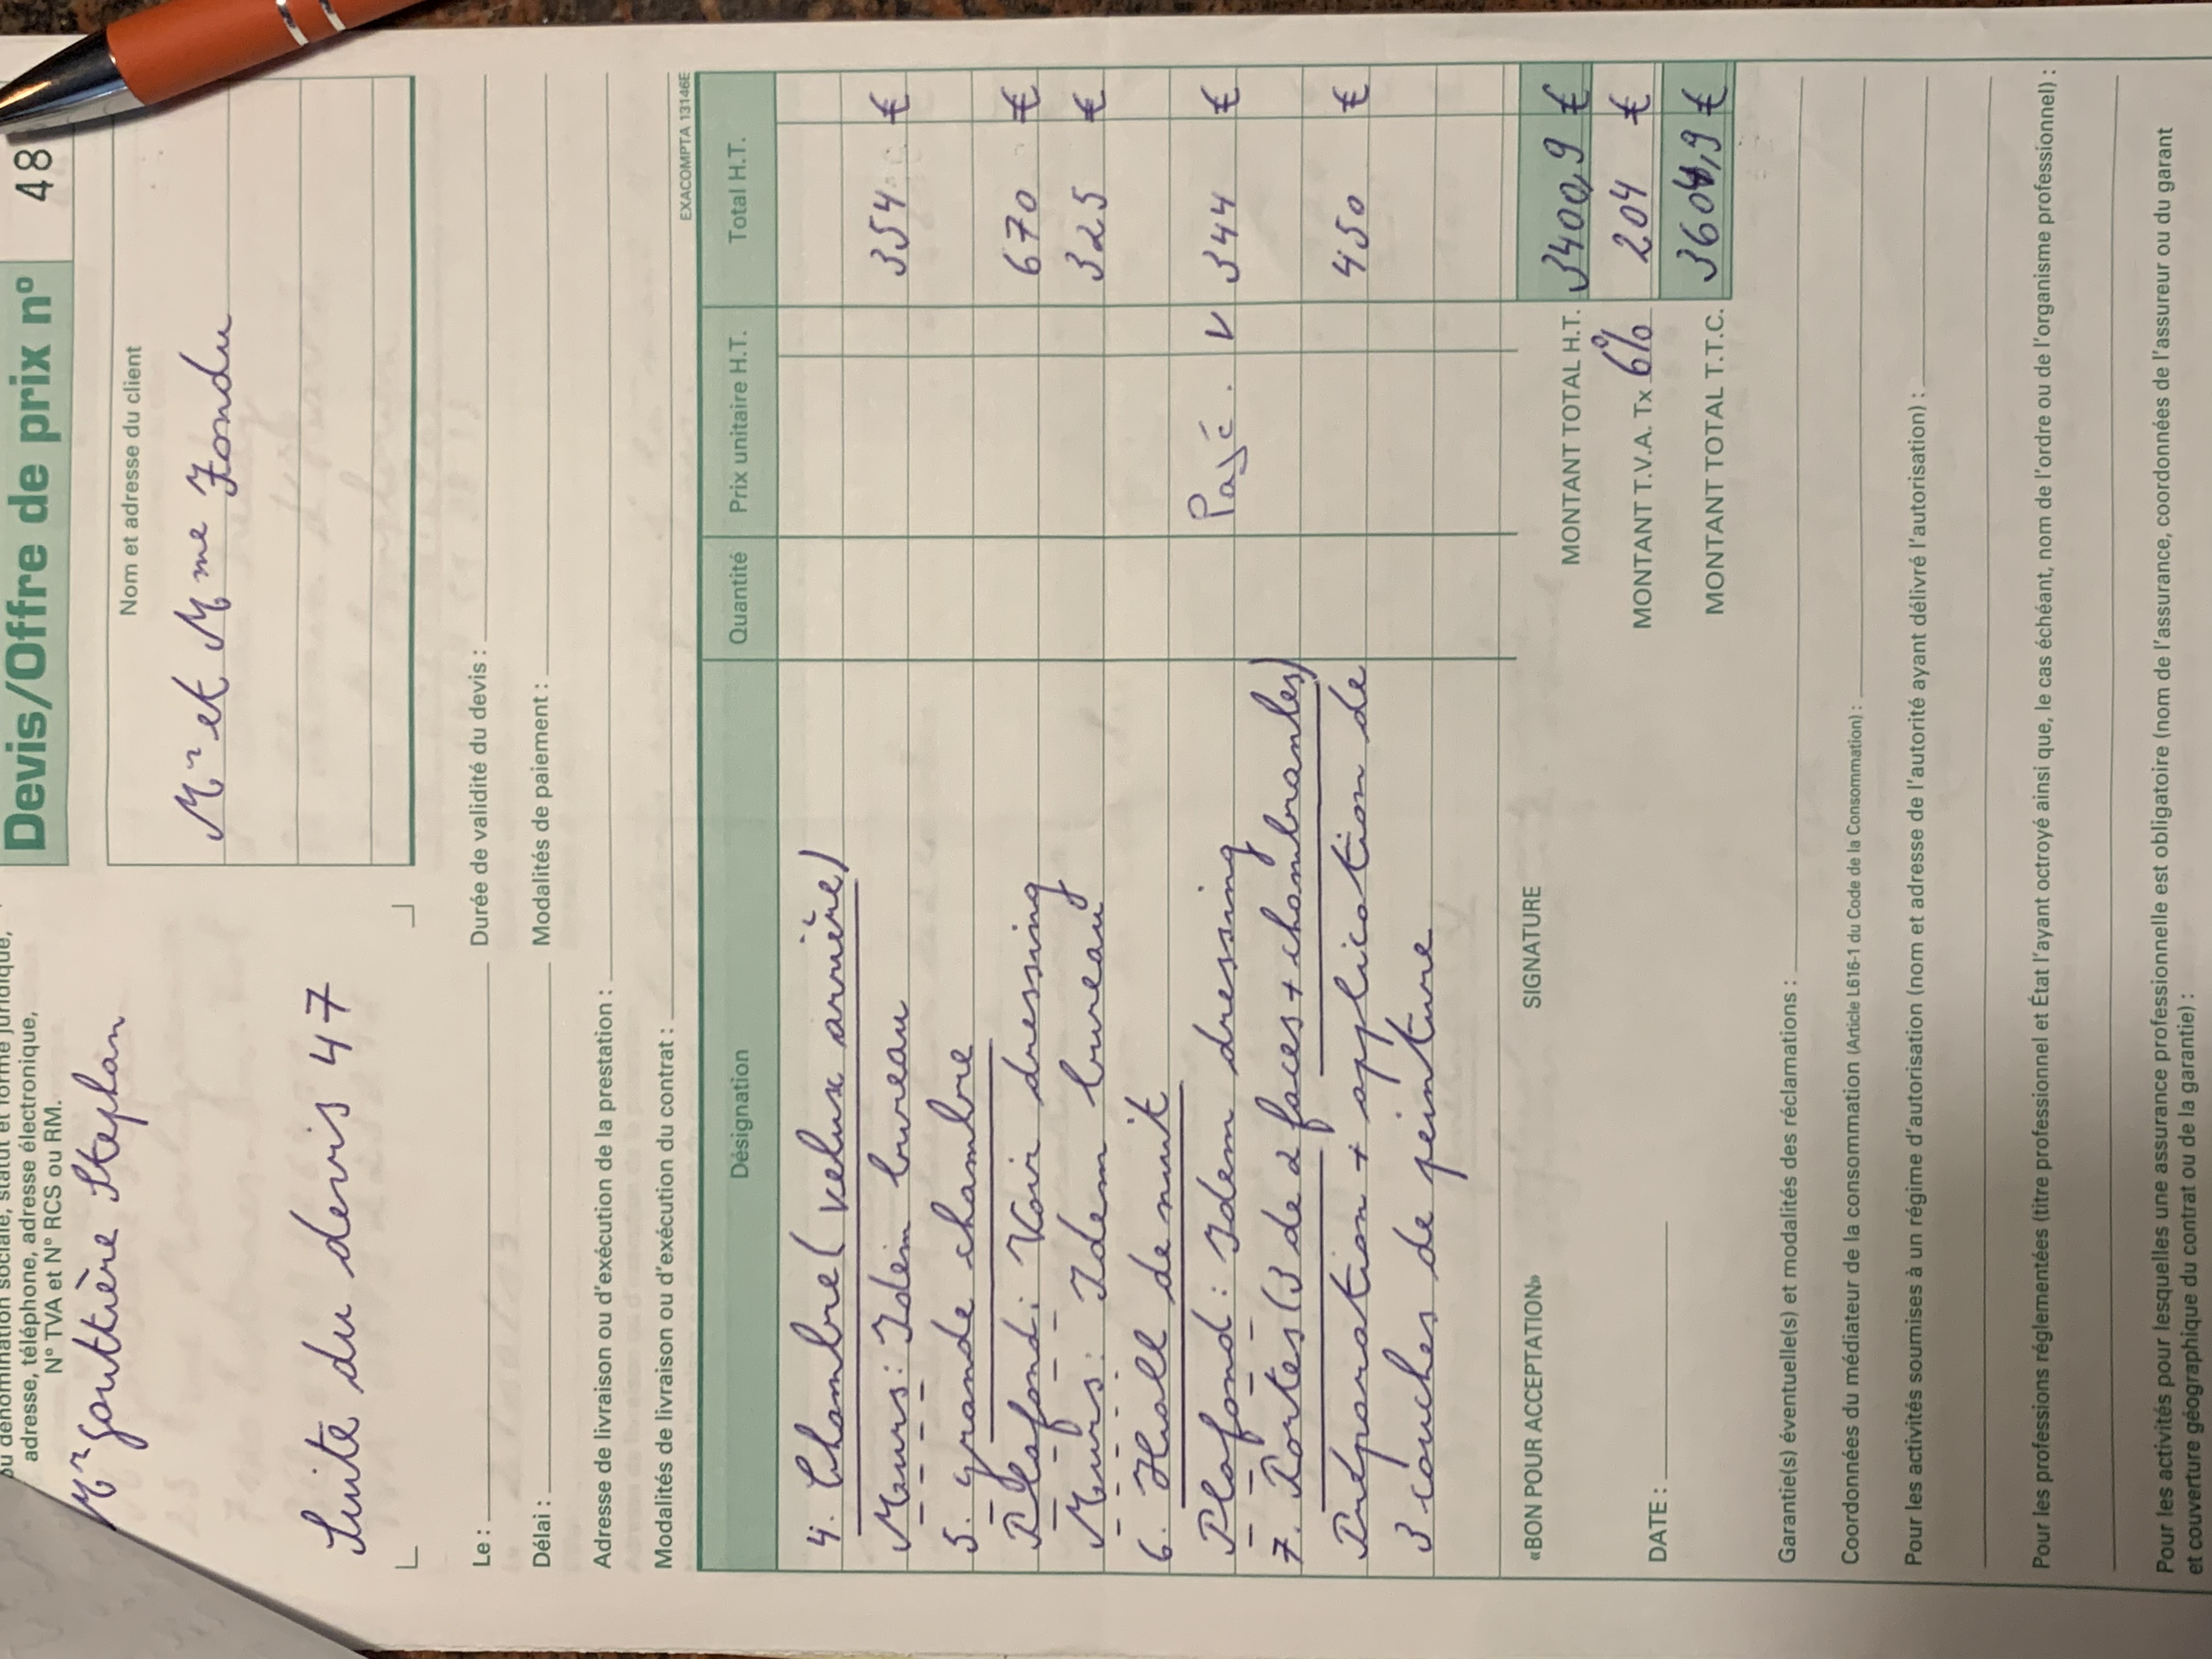 Devis/Offre de prix n° 48
statut et forme juridique,
adresse, téléphone, adresse électronique,
N° TVA et N° RCS ou RM.
Mr Gouttière Stephan
Suite du devis 47
Nom et adresse du client
Mr et Mme Fondu
Le :
Durée de validité du devis :
Délai :
Modalités de paiement :
Adresse de livraison ou d'exécution de la prestation :
Modalités de livraison ou d'exécution du contrat :
EXACOMPTA 13146E
Désignation Quantité Prix unitaire H.T. Total H.T.
4. Chambre (velux arrière)
Murs : Idem bureau 354 €
5. grande chambre
Plafond : Voir dressing 670 €
Murs : Idem bureau 325 €
6. Hall de nuit
Plafond : Idem dressing Payé. V 344 €
7. Portes (3 de 2 faces + chambranles)
Préparation + application de 450 €
3 couches de peinture
«BON POUR ACCEPTATION» SIGNATURE
MONTANT TOTAL H.T. 3400,9 €
DATE :
MONTANT T.V.A. Tx 6% 204 €
MONTANT TOTAL T.T.C. 3604,9 €
Garantie(s) éventuelle(s) et modalités des réclamations :
Coordonnées du médiateur de la consommation (Article L616-1 du Code de la Consommation) :
Pour les activités soumises à un régime d'autorisation (nom et adresse de l'autorité ayant délivré l'autorisation) :
Pour les professions réglementées (titre professionnel et État l'ayant octroyé ainsi que, le cas échéant, nom de l'ordre ou de l'organisme professionnel) :
Pour les activités pour lesquelles une assurance professionnelle est obligatoire (nom de l'assurance, coordonnées de l'assureur ou du garant
et couverture géographique du contrat ou de la garantie) :